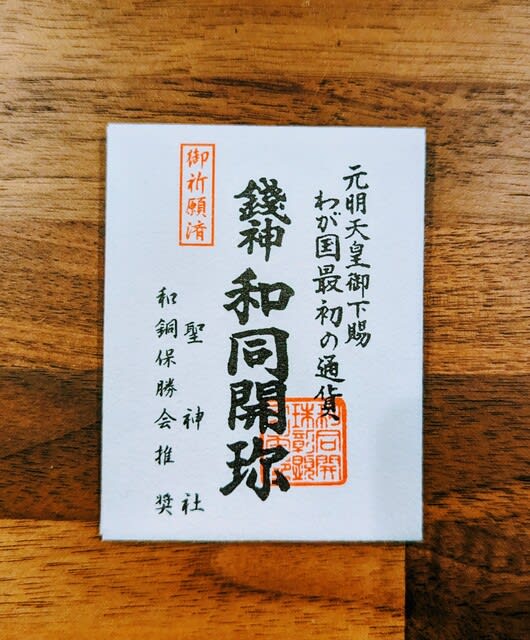 元明天皇御下賜
わが国最初の通貨
錢神 和同開珎
聖神社
和銅保勝会推奨
御祈願済